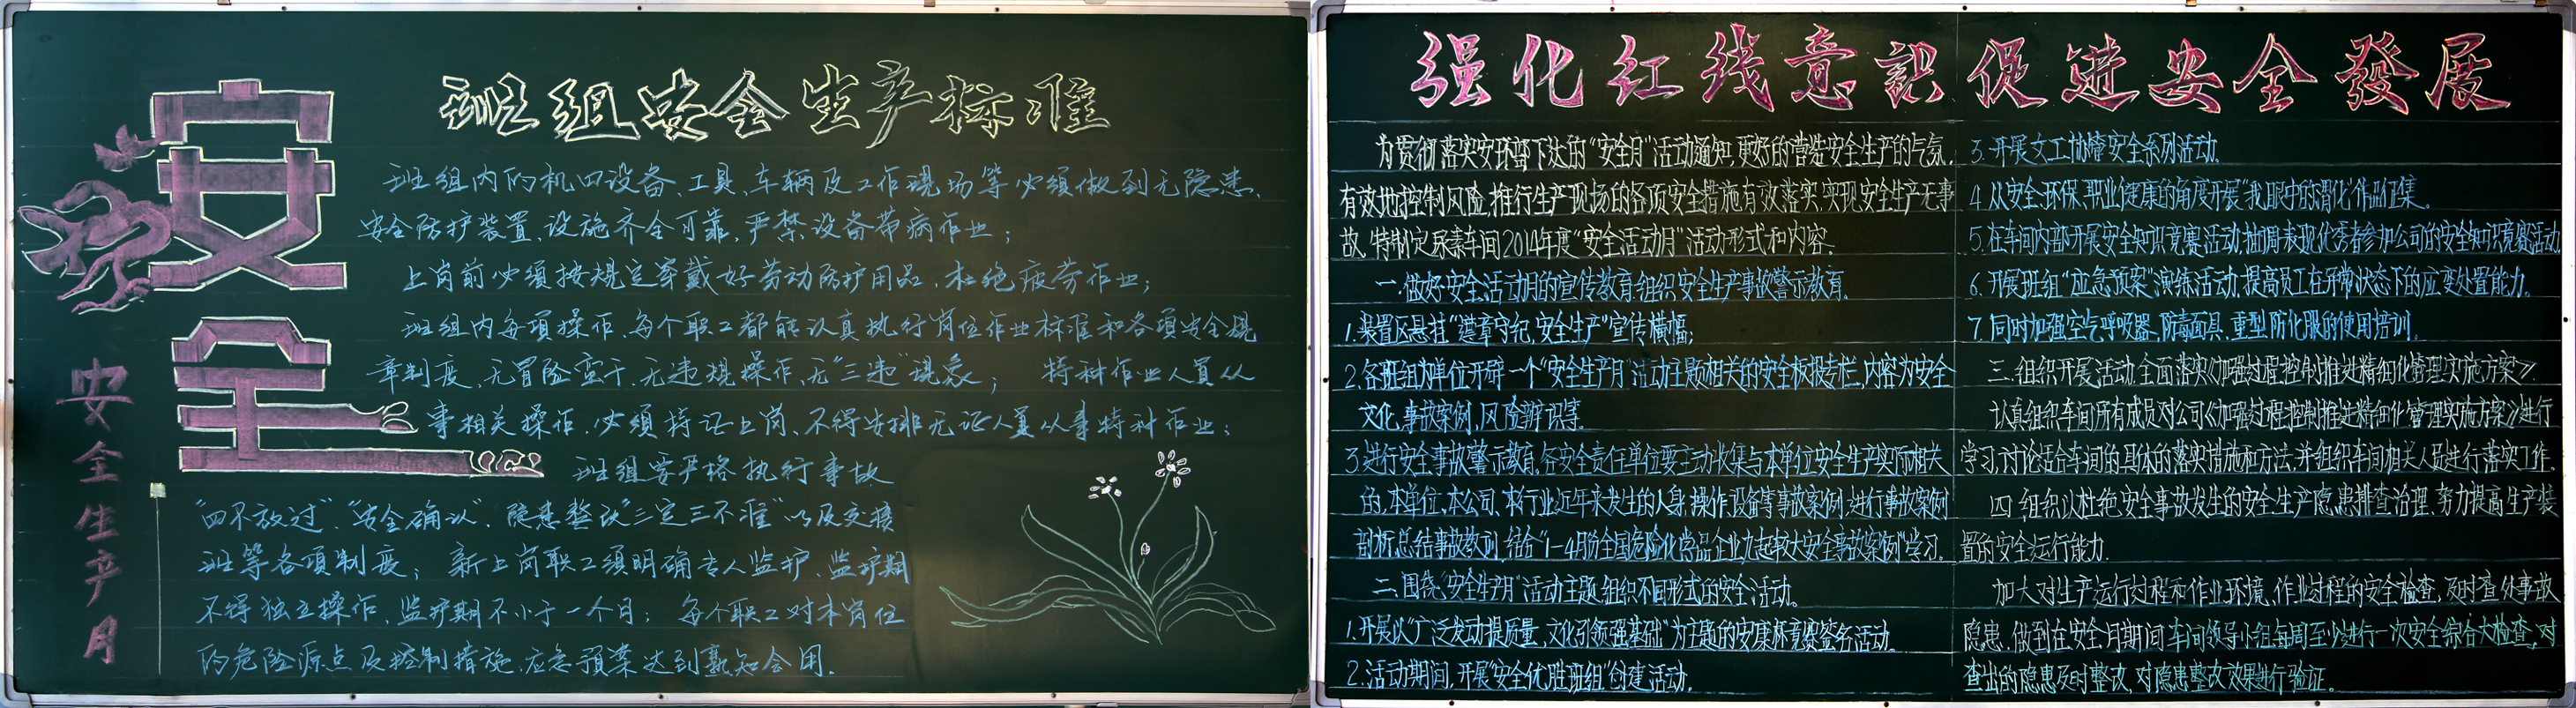 安全
安全生产月
班组安全生产标准
班组内的机四设备、工具、车辆及工作现场等必须做到无隐患、
安全防护装置、设施齐全可靠,严禁设备带病作业;
上岗前必须按规定穿戴好劳动防护用品,杜绝疲劳作业;
班组内每项操作、每个职工都能认真执行岗位作业标准和各项安全规
章制度,无冒险蛮干、无违规操作、无“三违”现象; 特种作业人员从
事相关操作,必须持证上岗、不得安排无证人员从事特种作业;
班组要严格执行事故
“四不放过”、“安全确认”、隐患整改“三定三不准”以及交接
班等各项制度; 新上岗职工须明确专人监护、监护期
不得独立操作,监护期不小于一个月; 每个职工对本岗位
的危险源点及控制措施、应急预案达到熟知会用.
强化红线意识 促进安全發展
为贯彻落实安环部下达的“安全月”活动通知,更好的营造安全生产的气氛,
有效地控制风险,推行生产现场的各项安全措施有效落实,实现安全生产无事
故,特制定尿素车间2014年度“安全活动月”活动形式和内容.
一.做好安全活动月的宣传教育.组织安全生产事故警示教育.
1.装置区悬挂“遵章守纪,安全生产”宣传横幅;
2.各班组为单位开辟一个“安全生产月”活动主题相关的安全板报专栏,内容为安全
文化,事故案例,风险辨识等.
3.进行安全事故警示教育,各安全责任单位要主动收集与本单位安全生产实际相关
的,本单位,本公司,本行业近年来发生的人身,操作,设备等事故案例,进行事故案例
剖析,总结事故教训,结合“1-4月份全国危险化学品企业九起较大安全事故案例”学习.
二.围绕“安全生产月”活动主题,组织不同形式的安全活动.
1.开展以“广泛发动提质量,文化引领强基础”为主题的安康杯竞赛签名活动.
2.活动期间,开展“安全优胜班组”创建活动.
3.开展女工协管安全系列活动.
4.从安全,环保,职业健康的角度开展“我眼中的渭化”作品征集.
5.在车间内部开展安全知识竞赛活动,抽调表现优秀者参加公司的安全知识竞赛活动.
6.开展班组“应急预案”演练活动,提高员工在异常状态下的应变处置能力.
7.同时加强空气呼吸器,防毒面具,重型防化服的使用培训.
三.组织开展活动,全面落实《加强过程控制推进精细化管理实施方案》.
认真组织车间所有成员对公司《加强过程控制推进精细化管理实施方案》进行
学习,讨论适合车间的具体的落实措施和方法,并组织车间相关人员进行落实工作.
四.组织以杜绝安全事故发生的安全生产隐患排查治理,努力提高生产装
置的安全运行能力.
加大对生产运行过程和作业环境,作业过程的安全检查,及时查处事故
隐患,做到在安全月期间车间领导小组每周至少进行一次安全综合大检查,对
查出的隐患及时整改,对隐患整改效果进行验证.